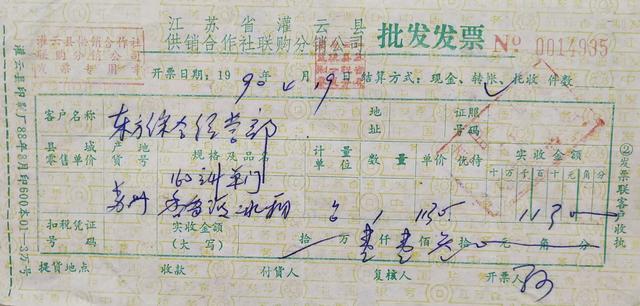 江苏省灌云县
供销合作社联购分销公司
批发发票
No 0014935
灌云县供销合作社
联购分销公司
开票日期：19 90年4月19日 结算方式：现金、转帐、托收 件数
客户名称
地址
证照号码
县城零售单价 产地货号 规格及品名 计量单位 数量 单价 优待 实收金额
十万千百十元角分
160立升单门
苏州 香雪海冰箱 台 1 1135
扣税凭证号码
实收金额（大写） 拾 万 壹仟壹佰 拾 元 角 分
提货地点 收款 付货人 复核人 开票人
②发票联客户收执
灌云县印刷厂88年8月印600本01-3万号